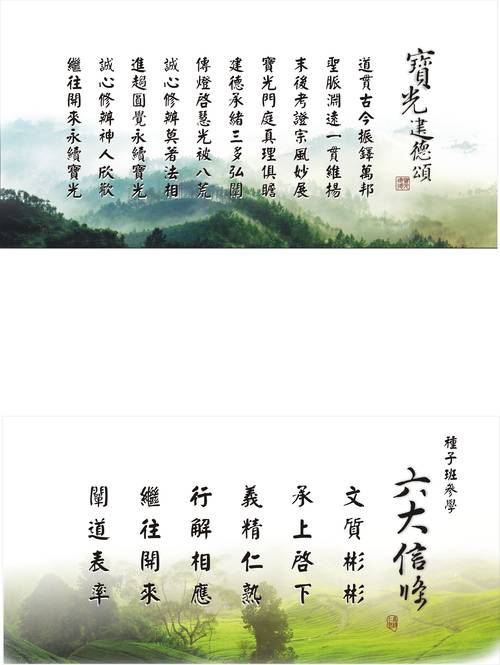 寶光建德頌
道貫古今振鐸萬邦
聖脈淵遠一貫維揚
末後考證宗風妙展
寶光門庭真理俱瞻
建德承緒三多弘闡
傳燈啓慧光被八荒
誠心修辦莫著法相
進趨圓覺永續寶光
誠心修辦神人欣歡
繼往開來永續寶光
種子班參學
六大信條
文質彬彬
承上啓下
義精仁熟
行解相應
繼往開來
闡道表率